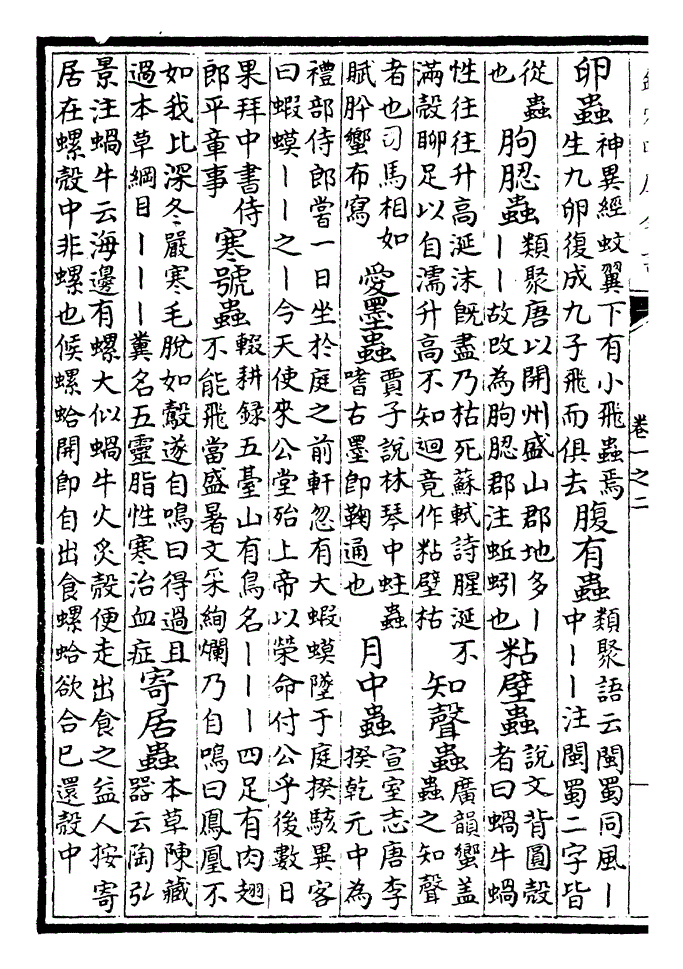 卷一之二
卵蟲
神異經蚊翼下有小飛蟲焉
生九卵復成九子飛而俱去
腹有蟲
類聚語云閩蜀同風丨
中丨丨注閩蜀二字皆
從蟲
也
朐䏰蟲
類聚唐以開州盛山郡地多丨
丨丨故改為朐䏰郡注蚯蚓也
粘壁蟲
說文背圓殼
者曰蝸牛蝸
性往往升高涎沫既盡乃枯死蘇軾詩腥涎不
滿殼聊足以自濡升高不知迴竟作粘壁枯
知聲蟲
廣韻蠁蓋
蟲之知聲
者也司馬相如
賦肸蠁布寫
愛墨蟲
賈子說林琴中蛀蟲
嗜古墨即鞠通也
月中蟲
宣室志唐李
揆乾元中為
禮部侍郎嘗一日坐於庭之前軒忽有大蝦蟆墜于庭揆駭異客
曰蝦蟆丨丨之丨今天使來公堂殆上帝以榮命付公乎後數日
果拜中書侍
郎平章事
寒號蟲
輟耕録五臺山有鳥名丨丨丨四足有肉翅
不能飛當盛暑文采絢爛乃自鳴曰鳳凰不
如我比深冬嚴寒毛脫如鷇遂自鳴曰得過且
過本草綱目丨丨丨糞名五靈脂性寒治血症
寄居蟲
本草陳藏
器云陶弘
景注蝸牛云海邊有螺大似蝸牛火炙殼便走出食之益人按寄
居在螺殼中非螺也候螺蛤開即自出食螺蛤欲合已還殼中